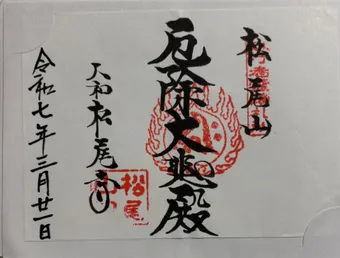 松尾山
厄除大悲殿
大和松尾寺
令和七年三月廿一日